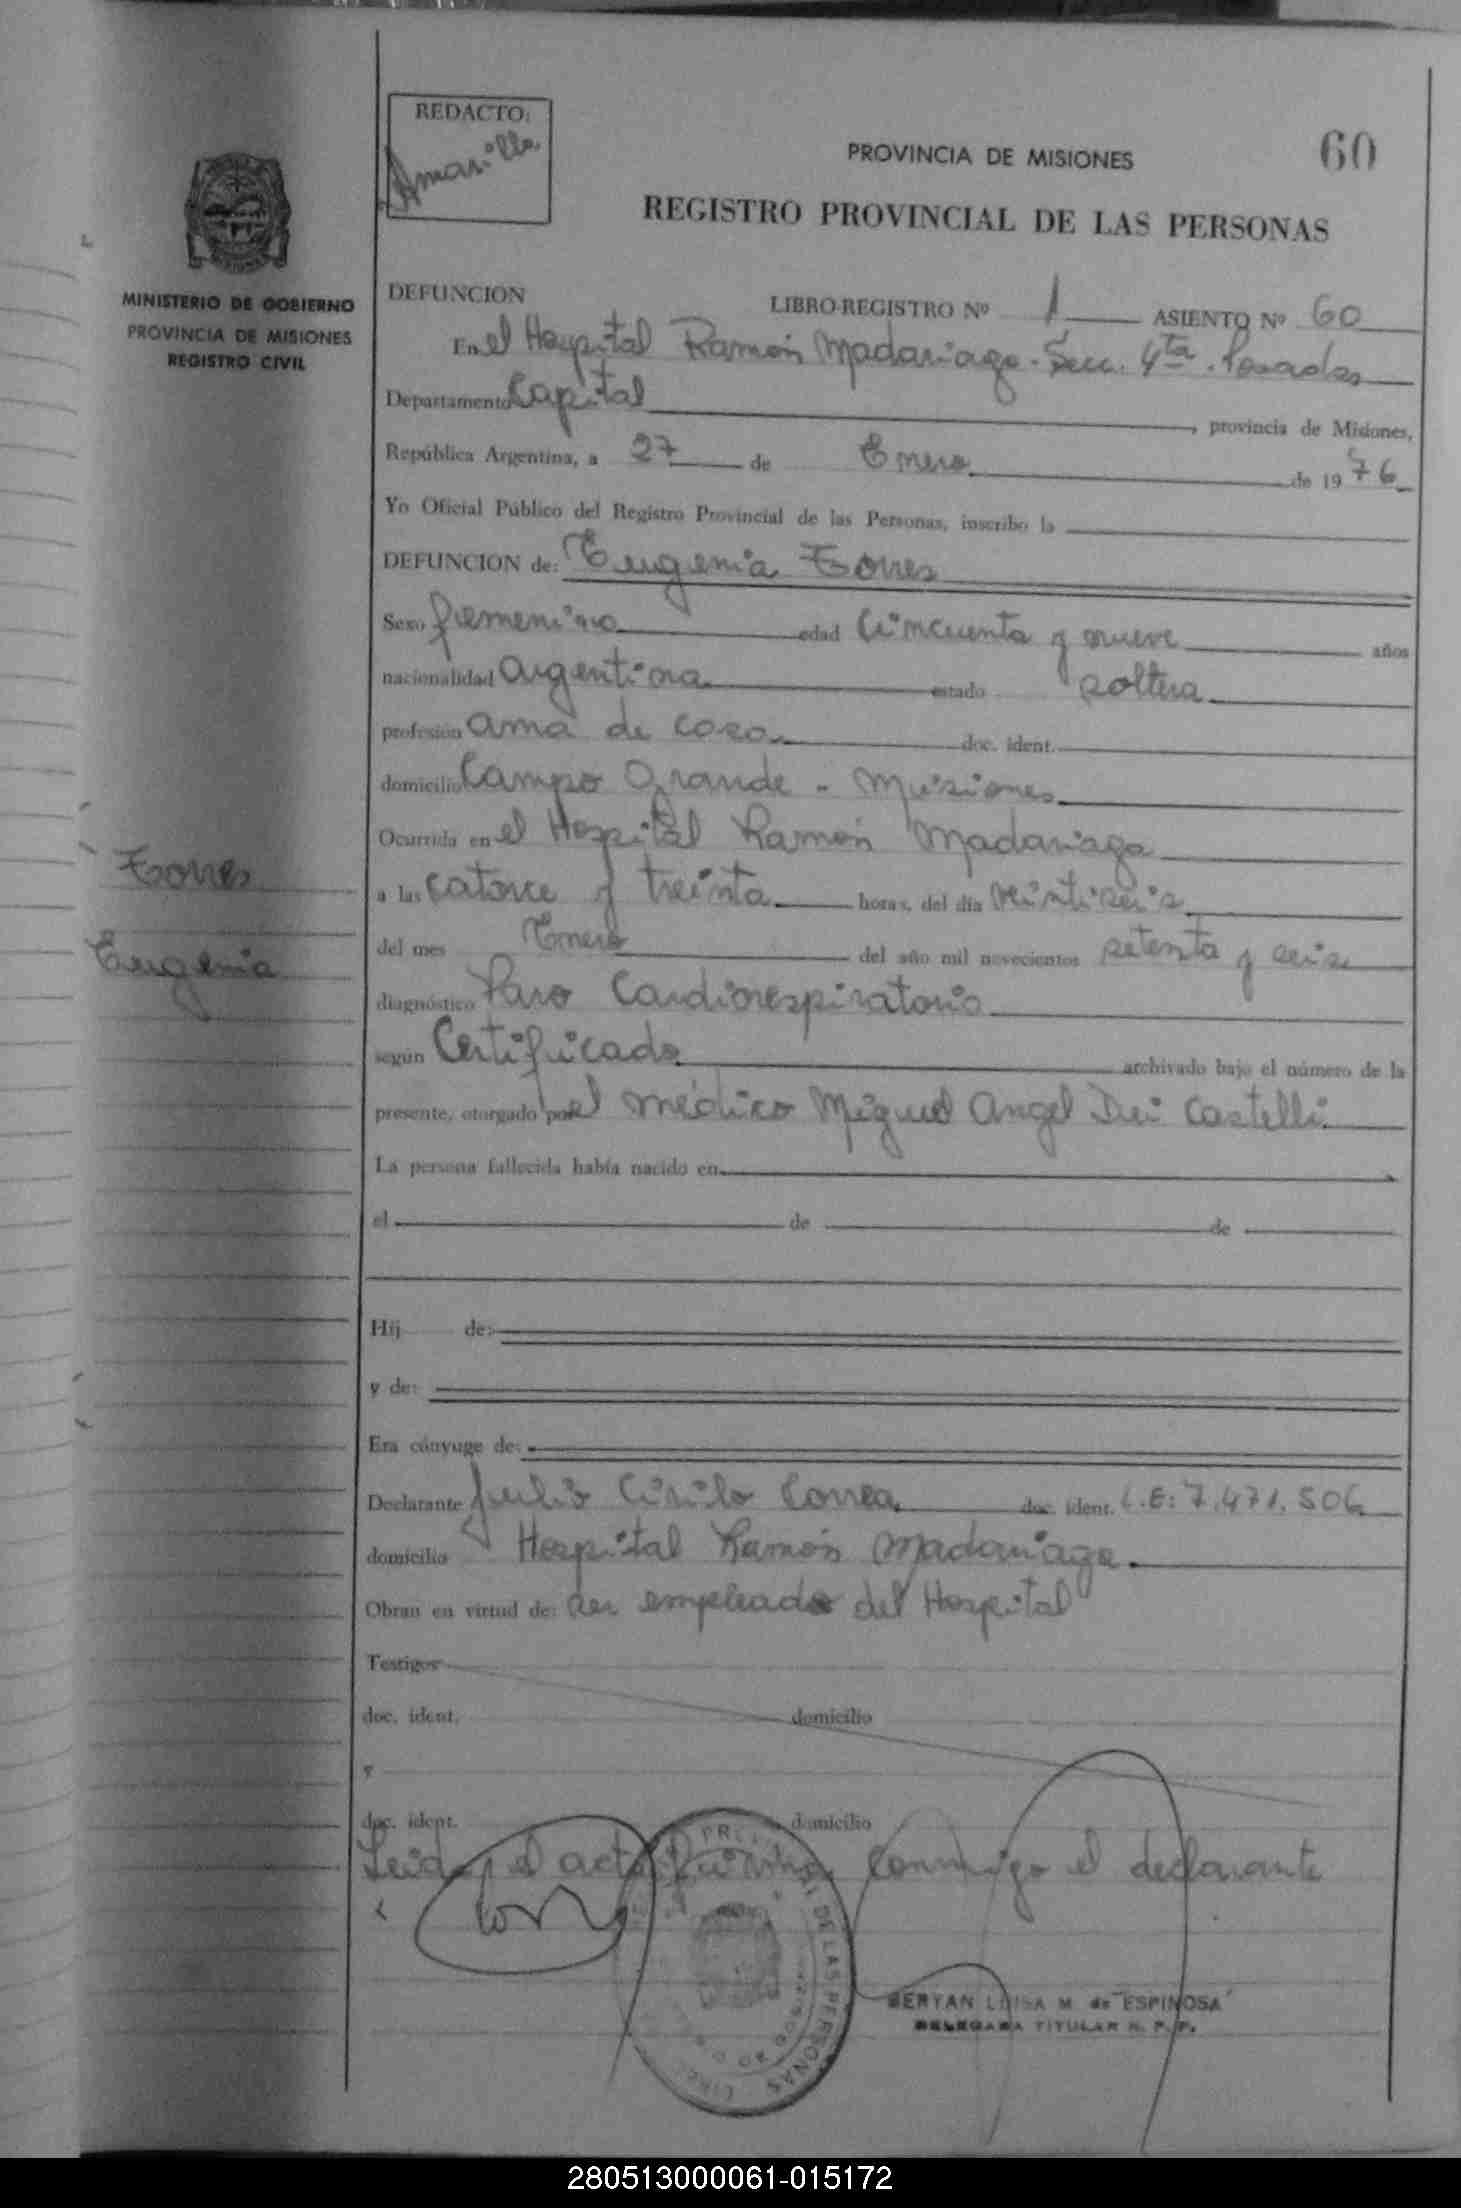 REDACTO:
Amarilla
PROVINCIA DE MISIONES
60
REGISTRO PROVINCIAL DE LAS PERSONAS
MINISTERIO DE GOBIERNO
PROVINCIA DE MISIONES
REGISTRO CIVIL
DEFUNCION LIBRO-REGISTRO Nº 1 ASIENTO Nº 60
En el Hospital Ramón Madariaga - Secc. 4ta. Posadas
Departamento Capital, provincia de Misiones,
República Argentina, a 27 de Enero de 1976
Yo Oficial Público del Registro Provincial de las Personas, inscribo la
DEFUNCION de: Eugenia Torres
Sexo femenino edad Cincuenta y nueve años
nacionalidad Argentina estado soltera
profesión ama de casa doc. ident.
domicilio Campo Grande - Misiones
Ocurrida en el Hospital Ramón Madariaga
Torres
a las catorce y treinta horas, del día veintiseis
Eugenia
del mes Enero del año mil novecientos setenta y seis
diagnóstico Paro Cardiorespiratorio
según Certificado archivado bajo el número de la
presente, otorgado por el médico Miguel Angel Dei Castelli
La persona fallecida había nacido en
el de de
Hij de:
y de:
Era cónyuge de:
Declarante Julio Cirilo Correa doc. ident. L.E: 7.471.506
domicilio Hospital Ramón Madariaga
Obran en virtud de: ser empleado del Hospital
Testigos
doc. ident. domicilio
y
doc. ident. domicilio
Leida el acta firma conmigo el declarante
BERTAN LUISA M. de ESPINOSA
DELEGADA TITULAR R. P. P.
280513000061-015172